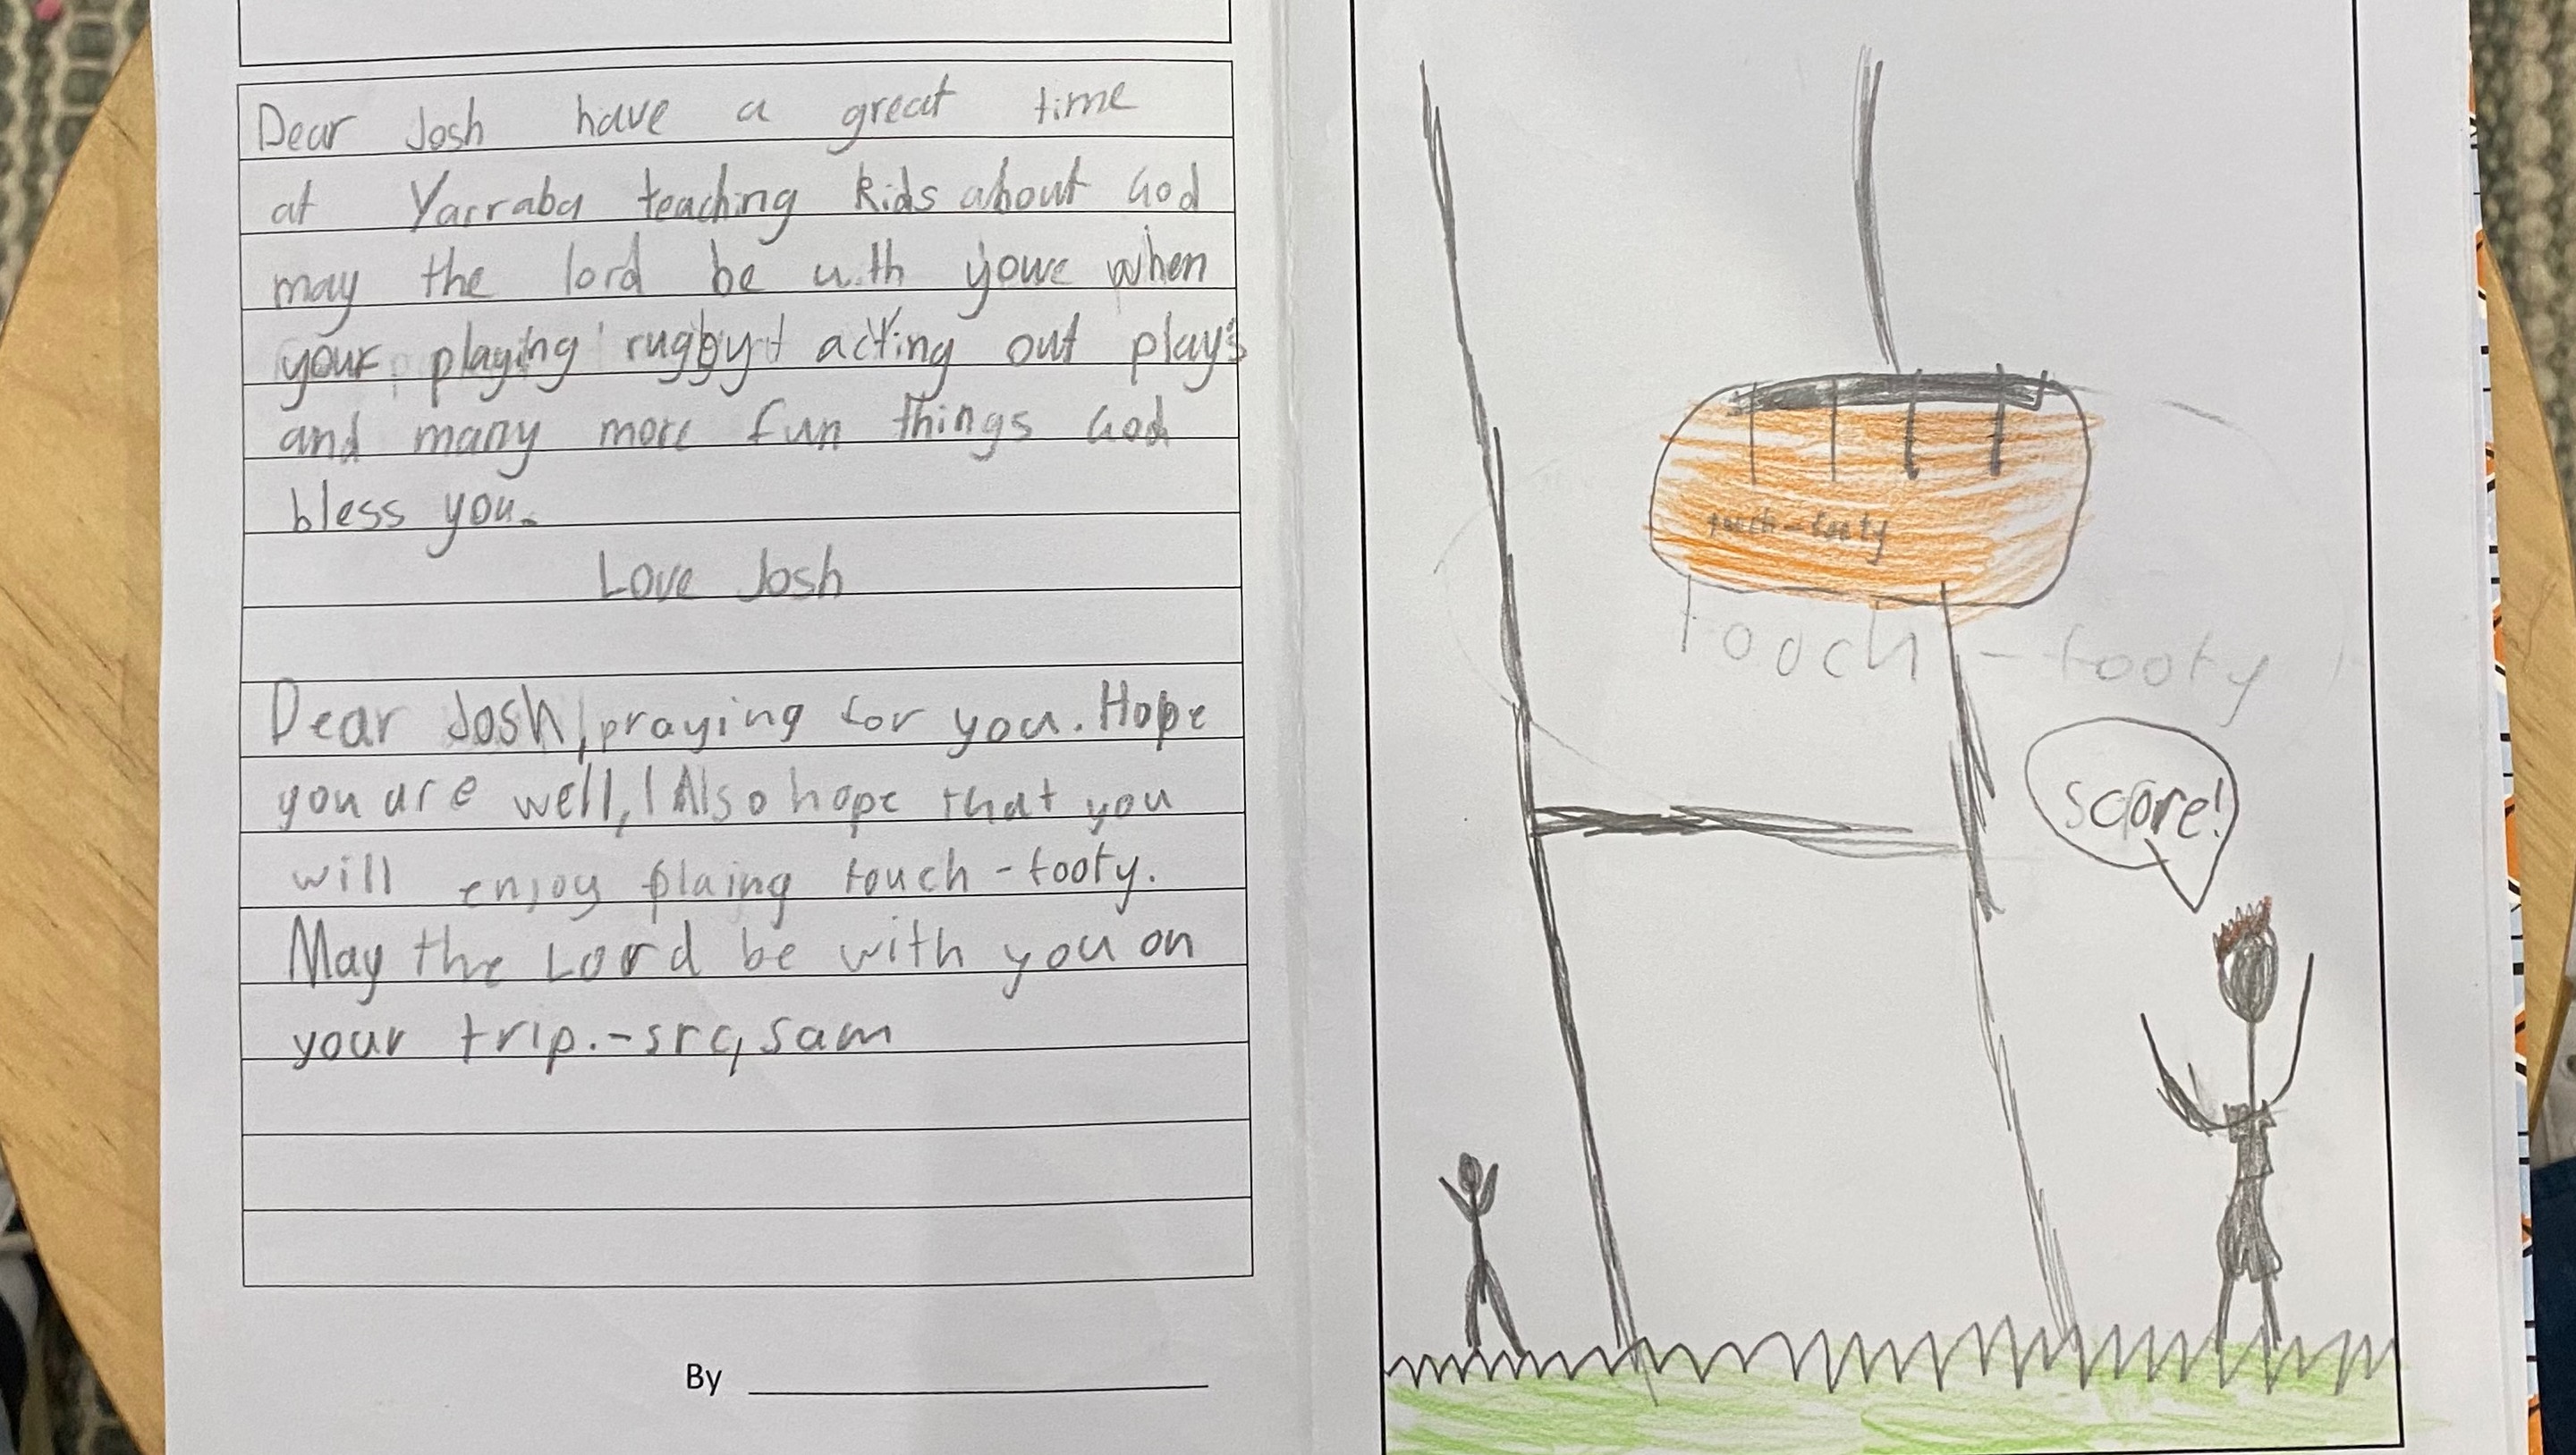 Dear Josh have a great time
at Yarraba teaching kids about God
may the lord be with youe when
your playing rugby acting out plays
and many more fun things God
bless you.
Love Josh
Dear Josh, praying for you. Hope
you are well, I Also hope that you
will enjoy plaing touch-footy.
May the Lord be with you on
your trip.-src, Sam
By
touch-footy
touch-footy
score!